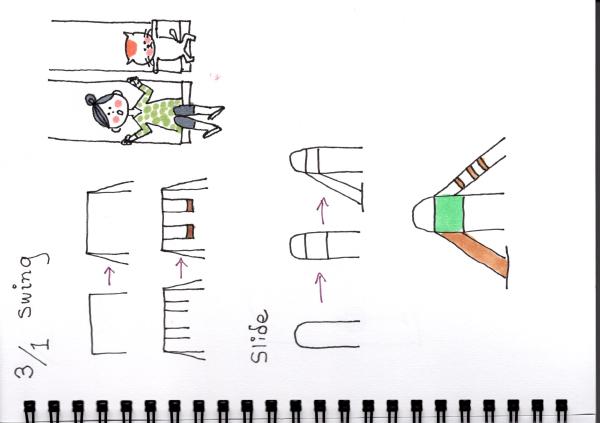 3/1 Swing
Slide